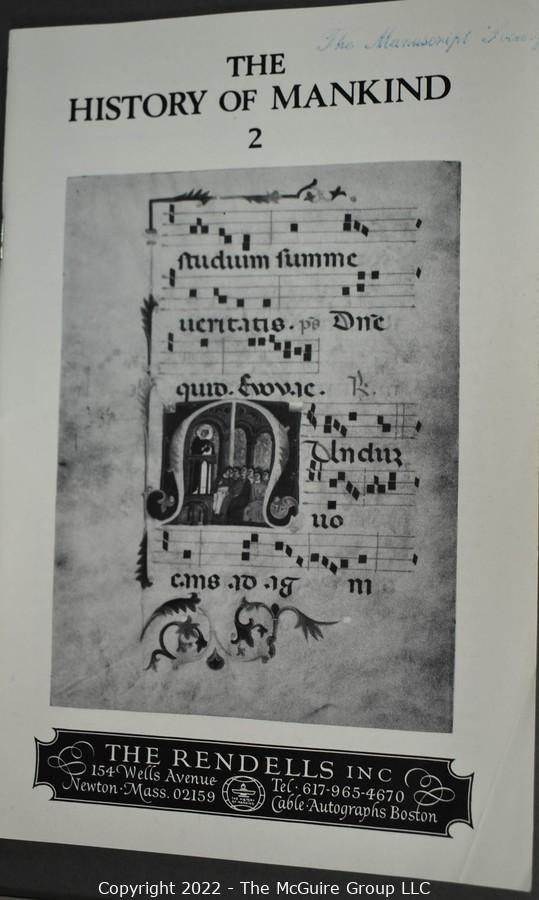 The Manuscript
THE
HISTORY OF MANKIND
2
studium summe
ueritatis. ps Dñe
quid. Evovae. R.
Undus
uo
cans ad ag ni
THE RENDELLS INC
154 Wells Avenue
Newton·Mass. 02159
Tel·617-965-4670
Cable·Autographs Boston
Copyright 2022 - The McGuire Group LLC